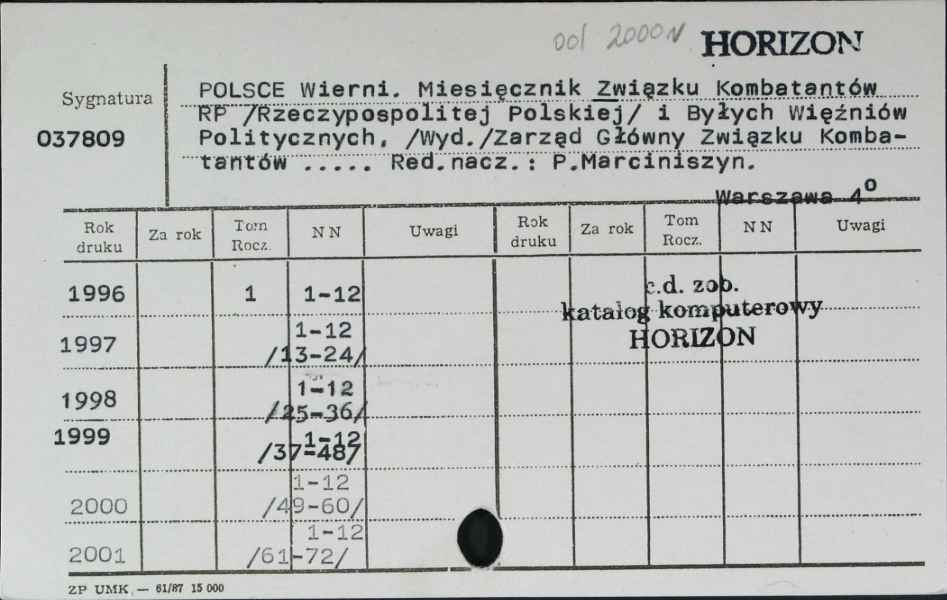 od 2000 N HORIZON
Sygnatura
037809
POLSCE Wierni. Miesięcznik Związku Kombatantów
RP /Rzeczypospolitej Polskiej/ i Byłych Więźniów
Politycznych, /Wyd./Zarząd Główny Związku Komba-
tantów ..... Red.nacz.: P.Marciniszyn.
Warszawa 4º
Rok druku Za rok Tom Rocz. NN Uwagi Rok druku Za rok Tom Rocz. NN Uwagi
1996 1 1-12
c.d. zob.
katalog komputerowy
HORIZON
1997 1-12
/13-24/
1998 1-12
/25-36/
1999 1-12
/37-48/
2000 1-12
/49-60/
2001 1-12
/61-72/
ZP UMK — 61/87 15 000